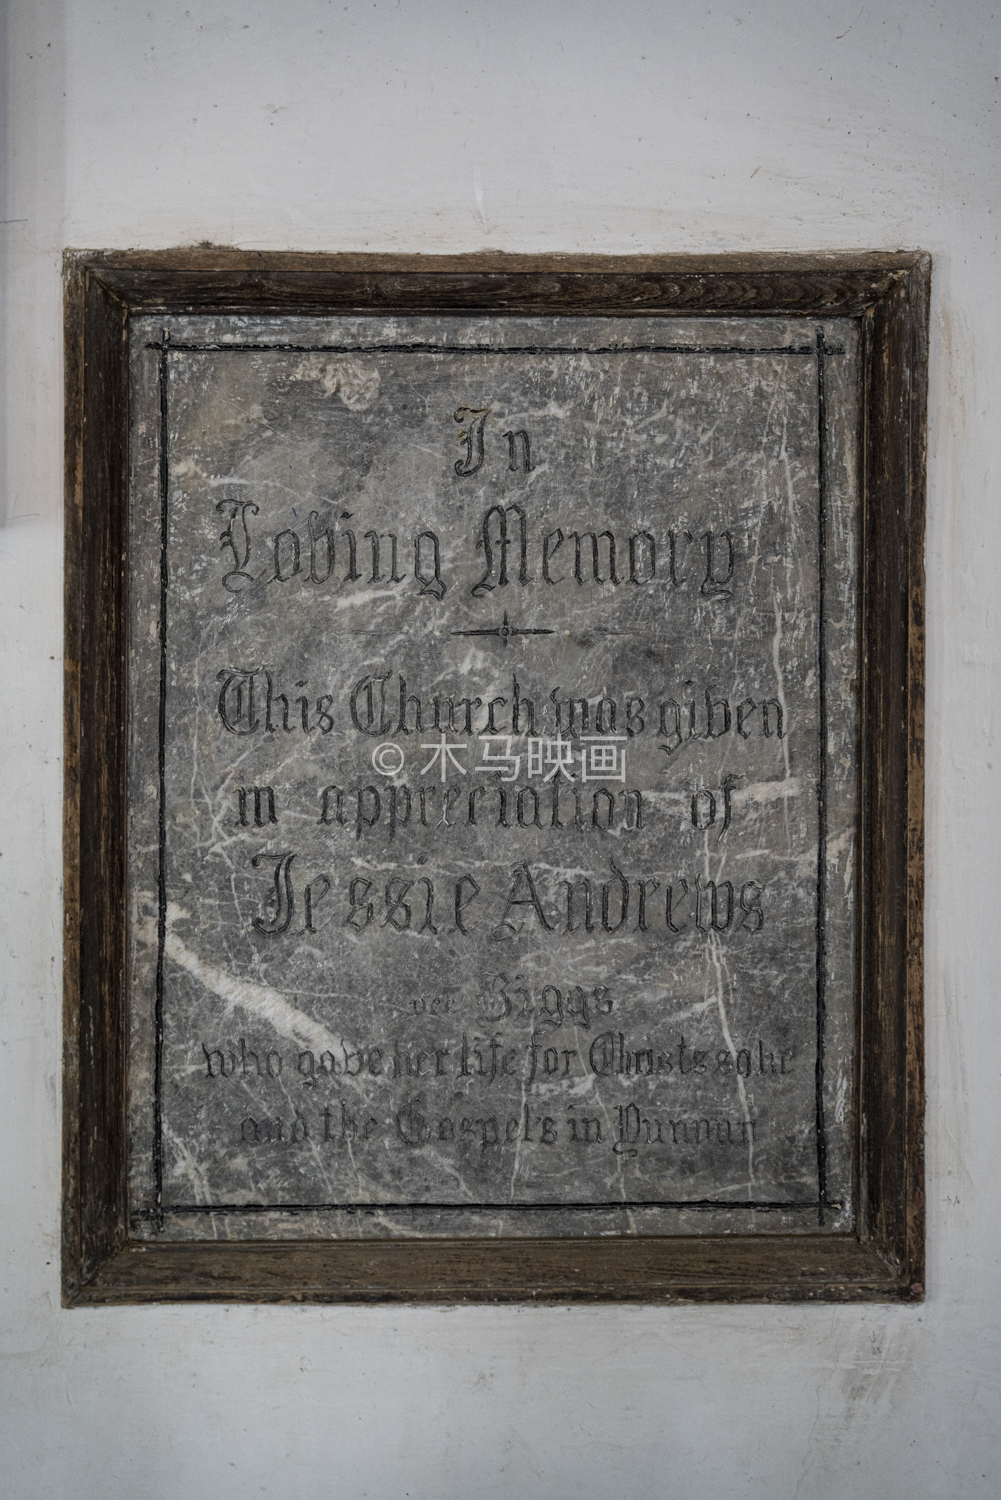 In
Loving Memory
This Church was given
© 木马映画
in appreciation of
Jessie Andrews
nee Biggs
who gave her life for Christs sake
and the Gospel's in Yunnan